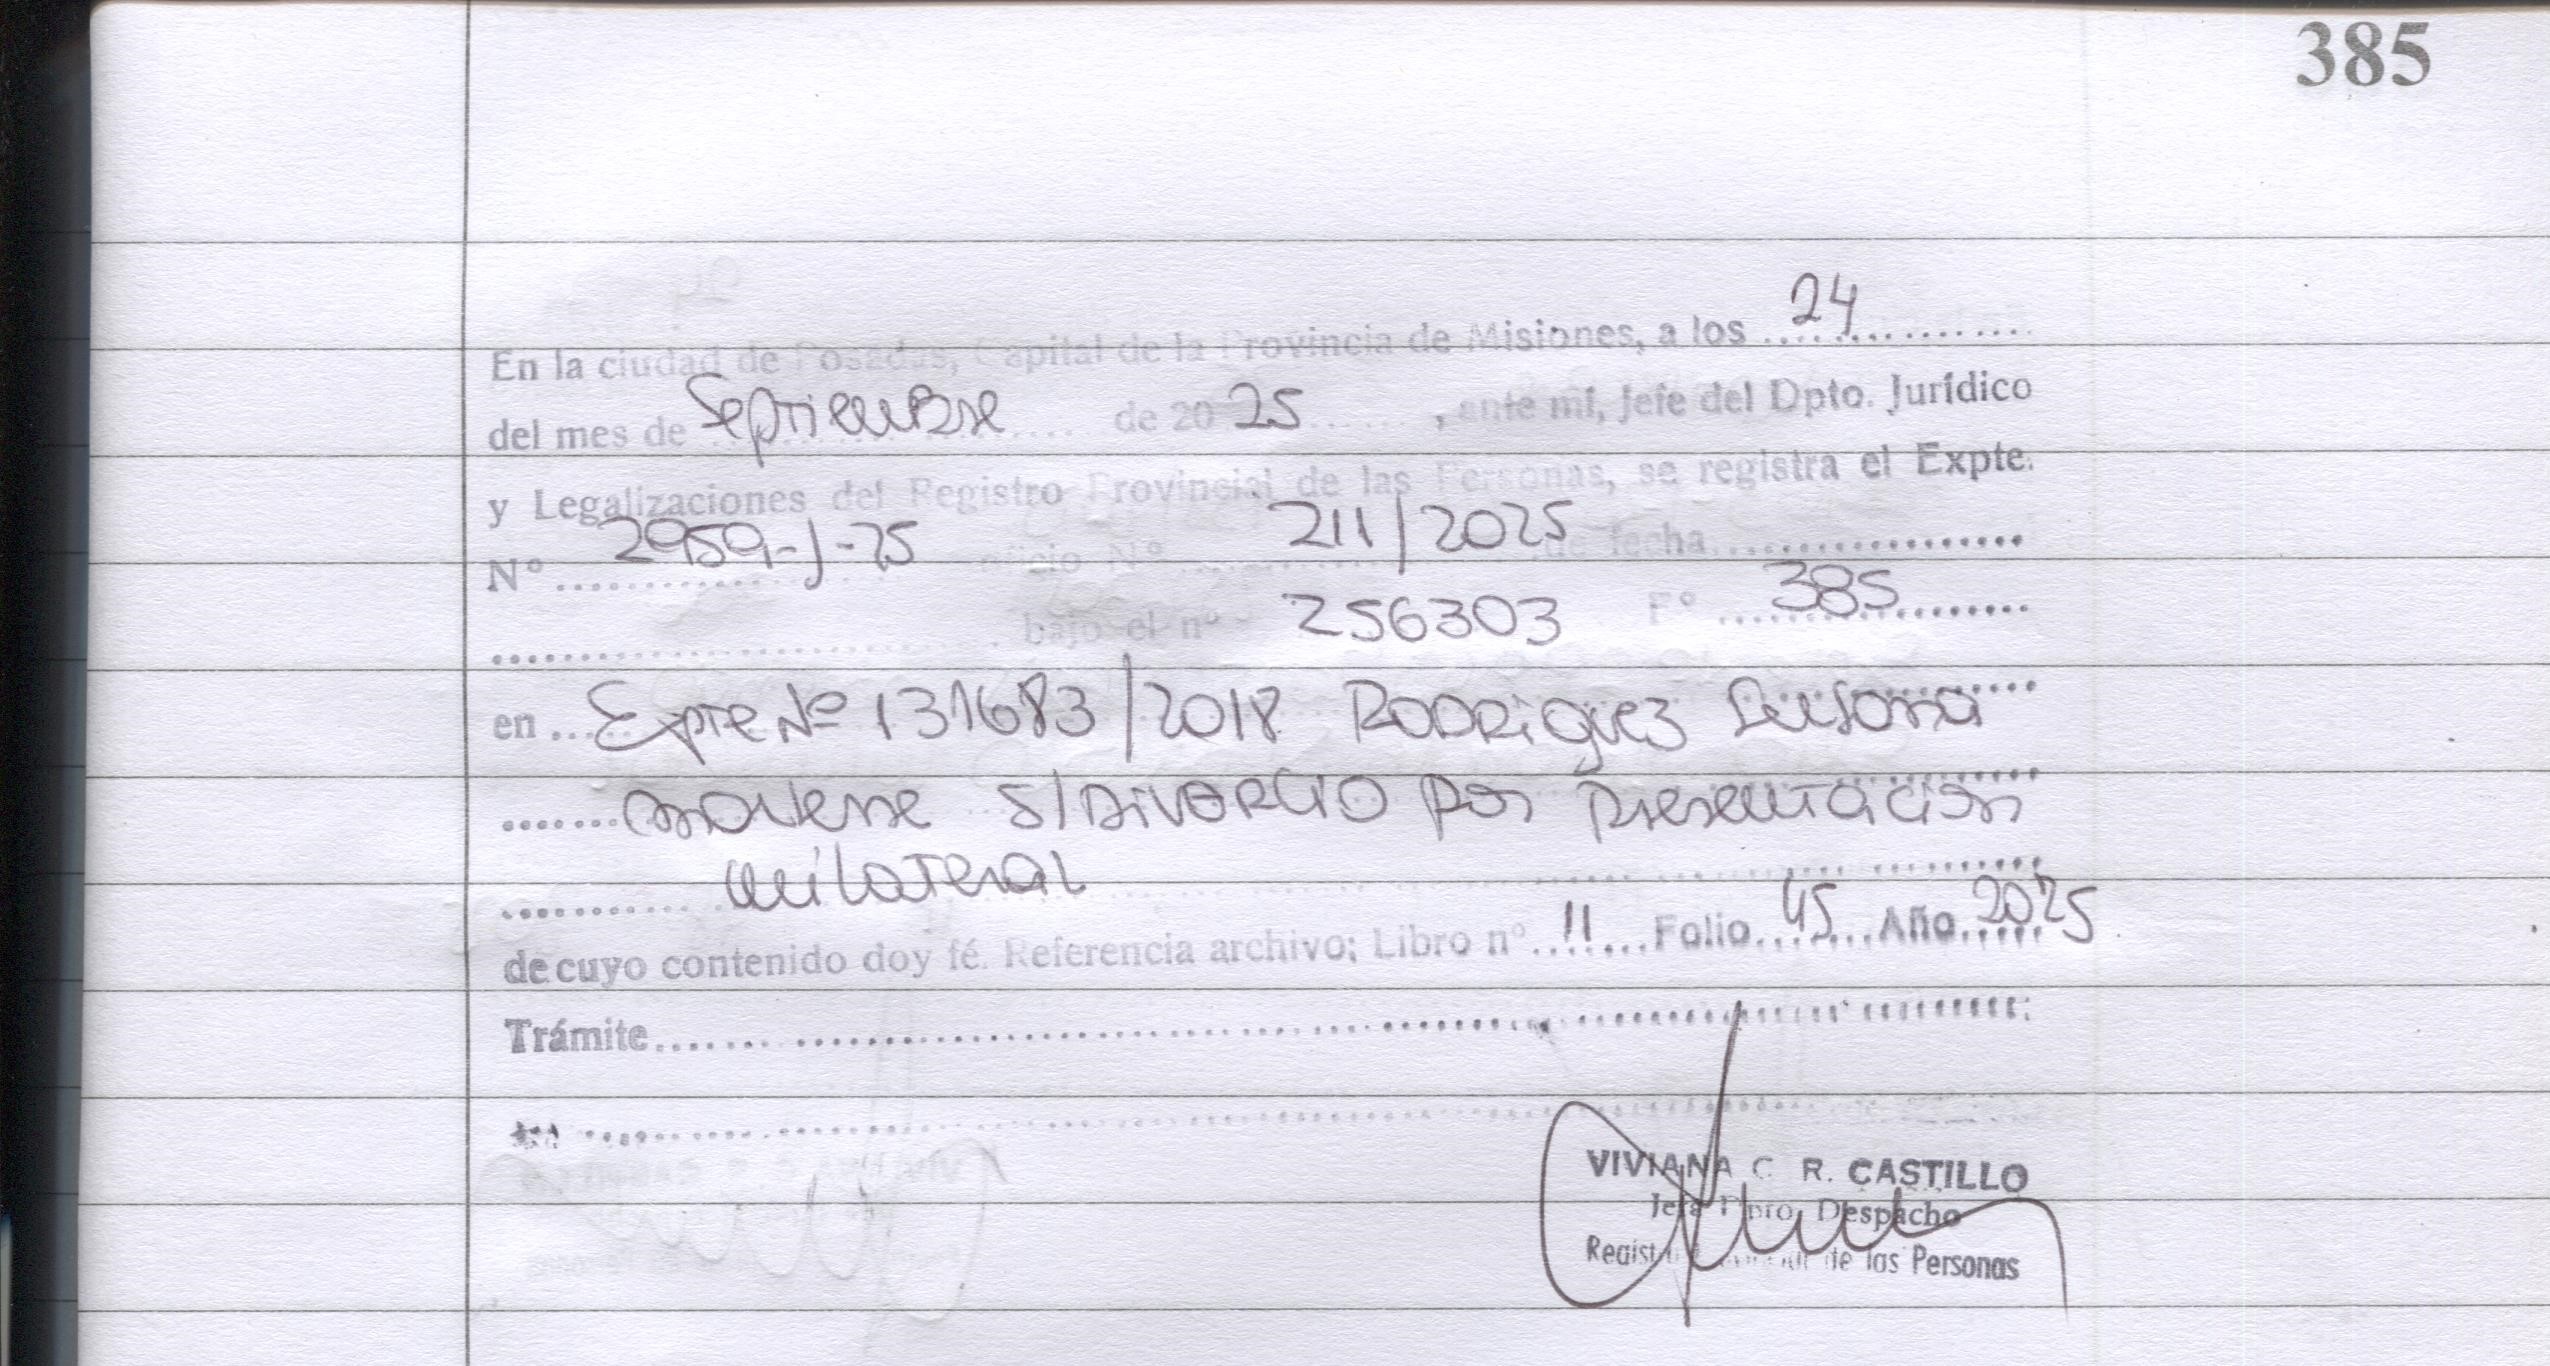 385
En la ciudad de Posadas, Capital de la Provincia de Misiones, a los 24
del mes de Septiembre de 20 25, ante mí, Jefe del Dpto. Jurídico
y Legalizaciones del Registro Provincial de las Personas, se registra el Expte.
N° 2959-J-25 oficio N° 211/2025 de fecha
bajo el n° 256303 F° 385
en Expte Nº 131683/2018 Rodriguez
s/Divorcio por presentación
unilateral
de cuyo contenido doy fé. Referencia archivo; Libro n° 11 Folio 45 Año 2025
Trámite
VIVIANA C. R. CASTILLO
Jefa Dpto. Despacho
de las Personas